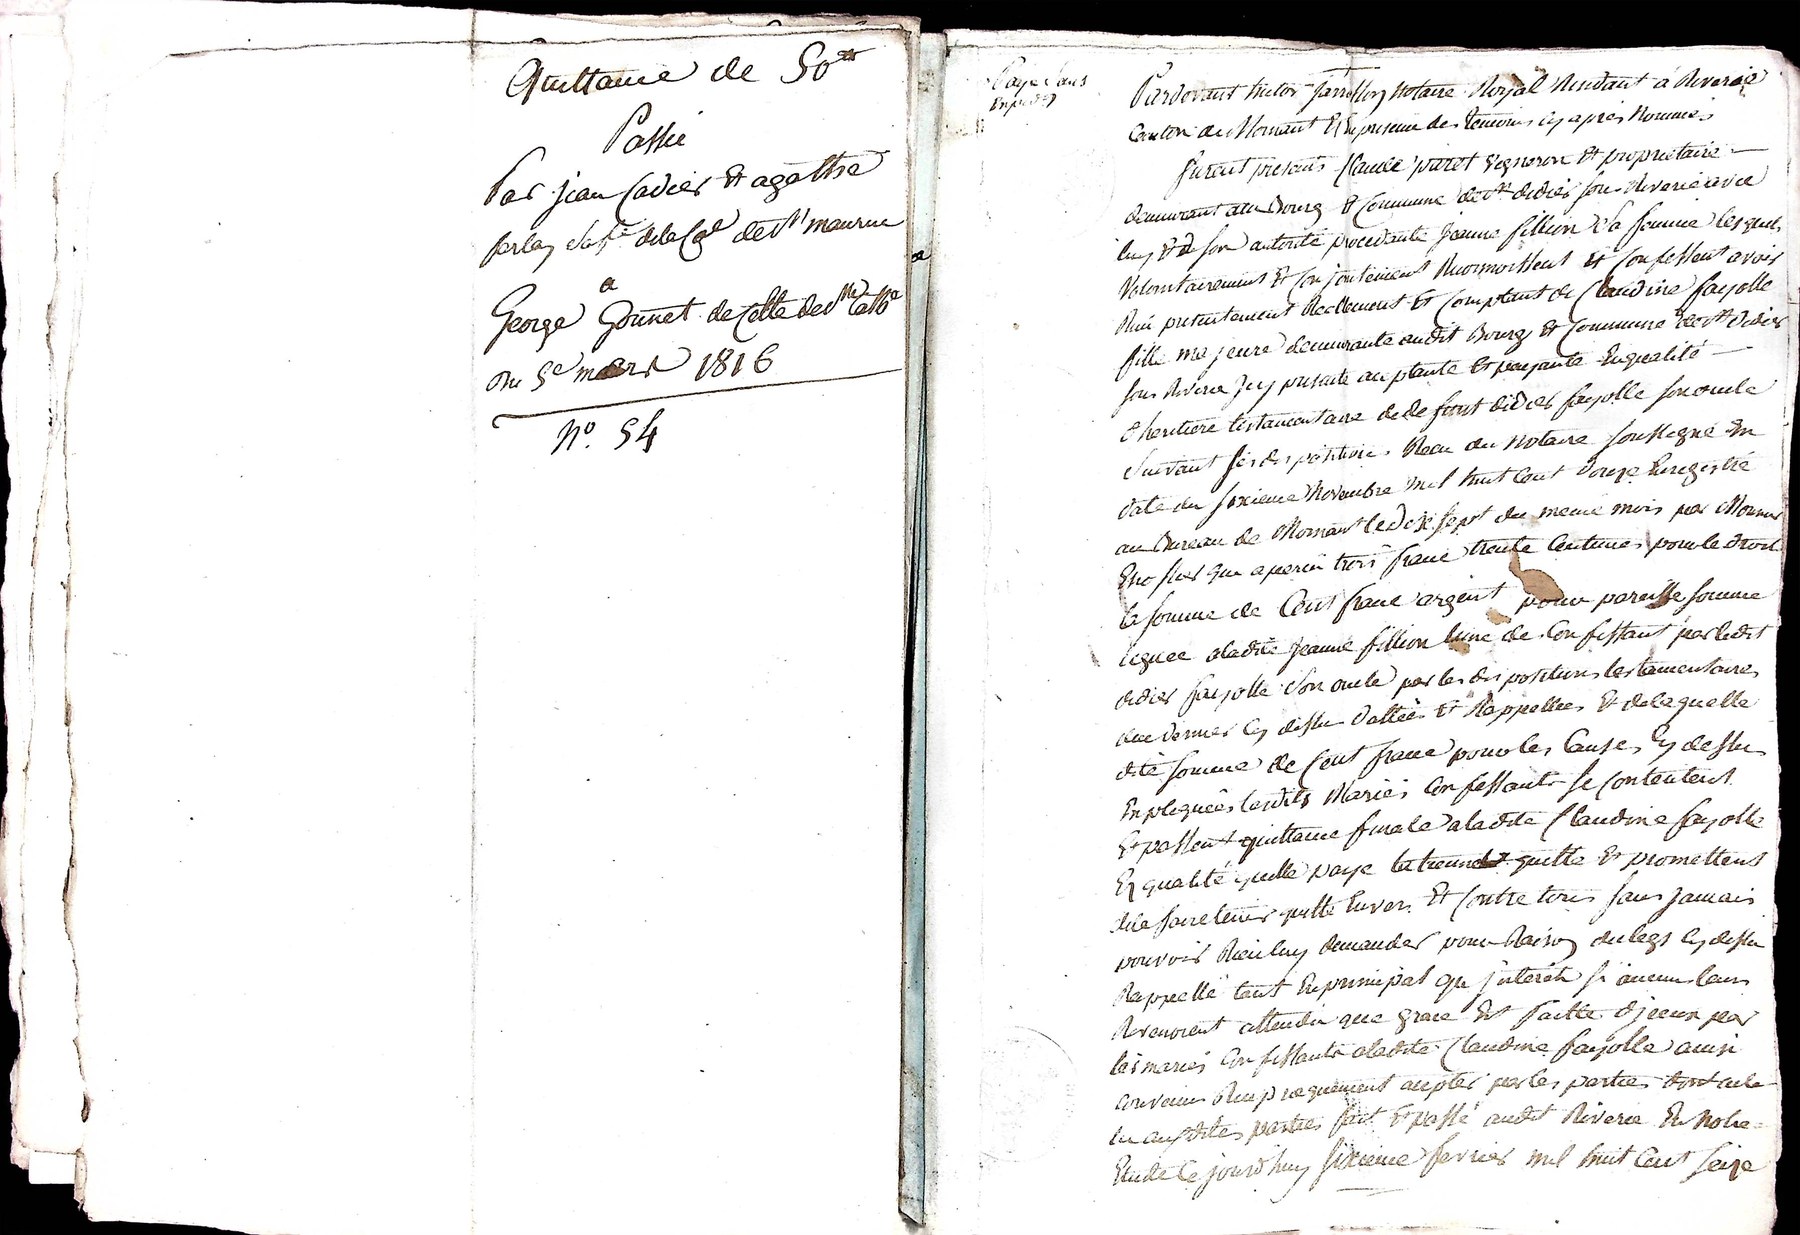 Quittance de 50ᵗᵗ
Passée
Par jean Cadier Et agathe
ferlay de la de St maurice
a
George Gonnet de Celle de Ste Cathe
du 5e mars 1816
N°. 54
Payé sans
Pardevant hector notaire Royal Residant á Riverie
Canton de Mornant Et En presence des temoins Cy apres Nommés
furent presents Claude vigneron Et proprietaire
demeurant au Bourg Et Commune de St didier sous Riverie avec
luy Et de son autorité procedante jeanne fillion Sa femme lesquels
Volontairement Et Conjointement Reconnoissent Et Confessent avoir
Reçu presentement Reellement Et Comptant de Claudine fayolle
fille majeure demeurante audit Bourg Et Commune de St Didier
sous Riverie Icy presente acceptante Et payante En qualité
d'heritiere testamentaire de defunt didier fayolle son oncle
Suivant ses dispositions Reçu du Notaire soussigné En
date du sixieme Novembre mil huit Cent douze Enregistré
au Bureau de Mornant le Dix sept du meme mois par Monsieur
que a perçu trois franc trente Centimes pour le droit
la somme de Cent franc argent pour pareille somme
leguee a ladite jeanne fillion lune de Confessant par ledit
didier fayolle Son oncle par les dispositions testamentaires
du dernier Cy dessus dattées Et Rappellees Et de laquelle
dite somme de Cent franc pour les Causes Cy dessus
Expliquées lesdits Mariés Confessants se Contentent
Et passent quittance finale a ladite Claudine fayolle
En qualité quelle paye la tiennent quitte Et promettent
de la faire tenir quitte Envers Et Contre tous sans jamais
pouvoir Rien luy demander pour Raison du legs Cy dessus
Rappellé tant En principal qu'interêts si aucuns leurs
Revenoient attendu que grace Est faitte d'jceux par
les mariés Confessants a ladite Claudine fayolle ainsi
convenu Reciproquement accepté par les parties dont acte
lu auxdites parties fait Et passé audit Riverie En Notre
Etude Ce jourd'huy sixieme fevrier mil huit Cent seize